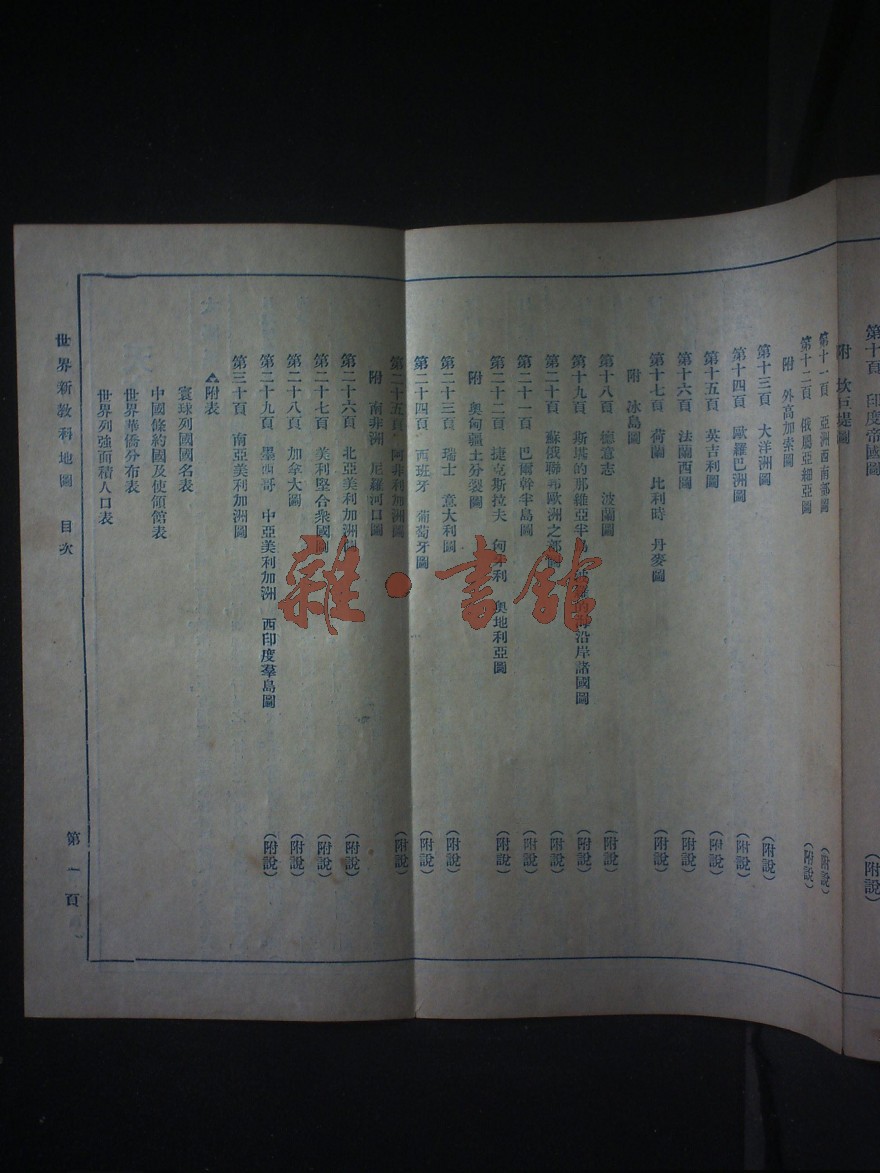 第十頁 印度帝國圖 (附說)
附 坎巨堤圖
第十一頁 亞洲西南部圖 (附說)
第十二頁 俄屬亞細亞圖 (附說)
附 外高加索圖
第十三頁 大洋洲圖 (附說)
第十四頁 歐羅巴洲圖 (附說)
第十五頁 英吉利圖 (附說)
第十六頁 法蘭西圖 (附說)
第十七頁 荷蘭 比利時 丹麥圖 (附說)
附 冰島圖
第十八頁 德意志 波蘭圖 (附說)
第十九頁 斯堪的那維亞半島 沿岸諸國圖 (附說)
第二十頁 蘇俄聯邦歐洲之部圖 (附說)
第二十一頁 巴爾幹半島圖 (附說)
第二十二頁 捷克斯拉夫 匈牙利 奧地利亞圖 (附說)
附 奧匈疆土分裂圖
第二十三頁 瑞士 意大利圖 (附說)
第二十四頁 西班牙 葡萄牙圖 (附說)
第二十五頁 阿非利加洲圖 (附說)
附 南非洲 尼羅河口圖
第二十六頁 北亞美利加洲圖 (附說)
第二十七頁 美利堅合衆國圖 (附說)
第二十八頁 加拿大圖 (附說)
第二十九頁 墨西哥 中亞美利加洲 西印度羣島圖 (附說)
第三十頁 南亞美利加洲圖
附表
寰球列國國名表
中國條約國及使領館表
世界華僑分布表
世界列強面積人口表
世界新教科地圖 目次 第一頁
雜·書館